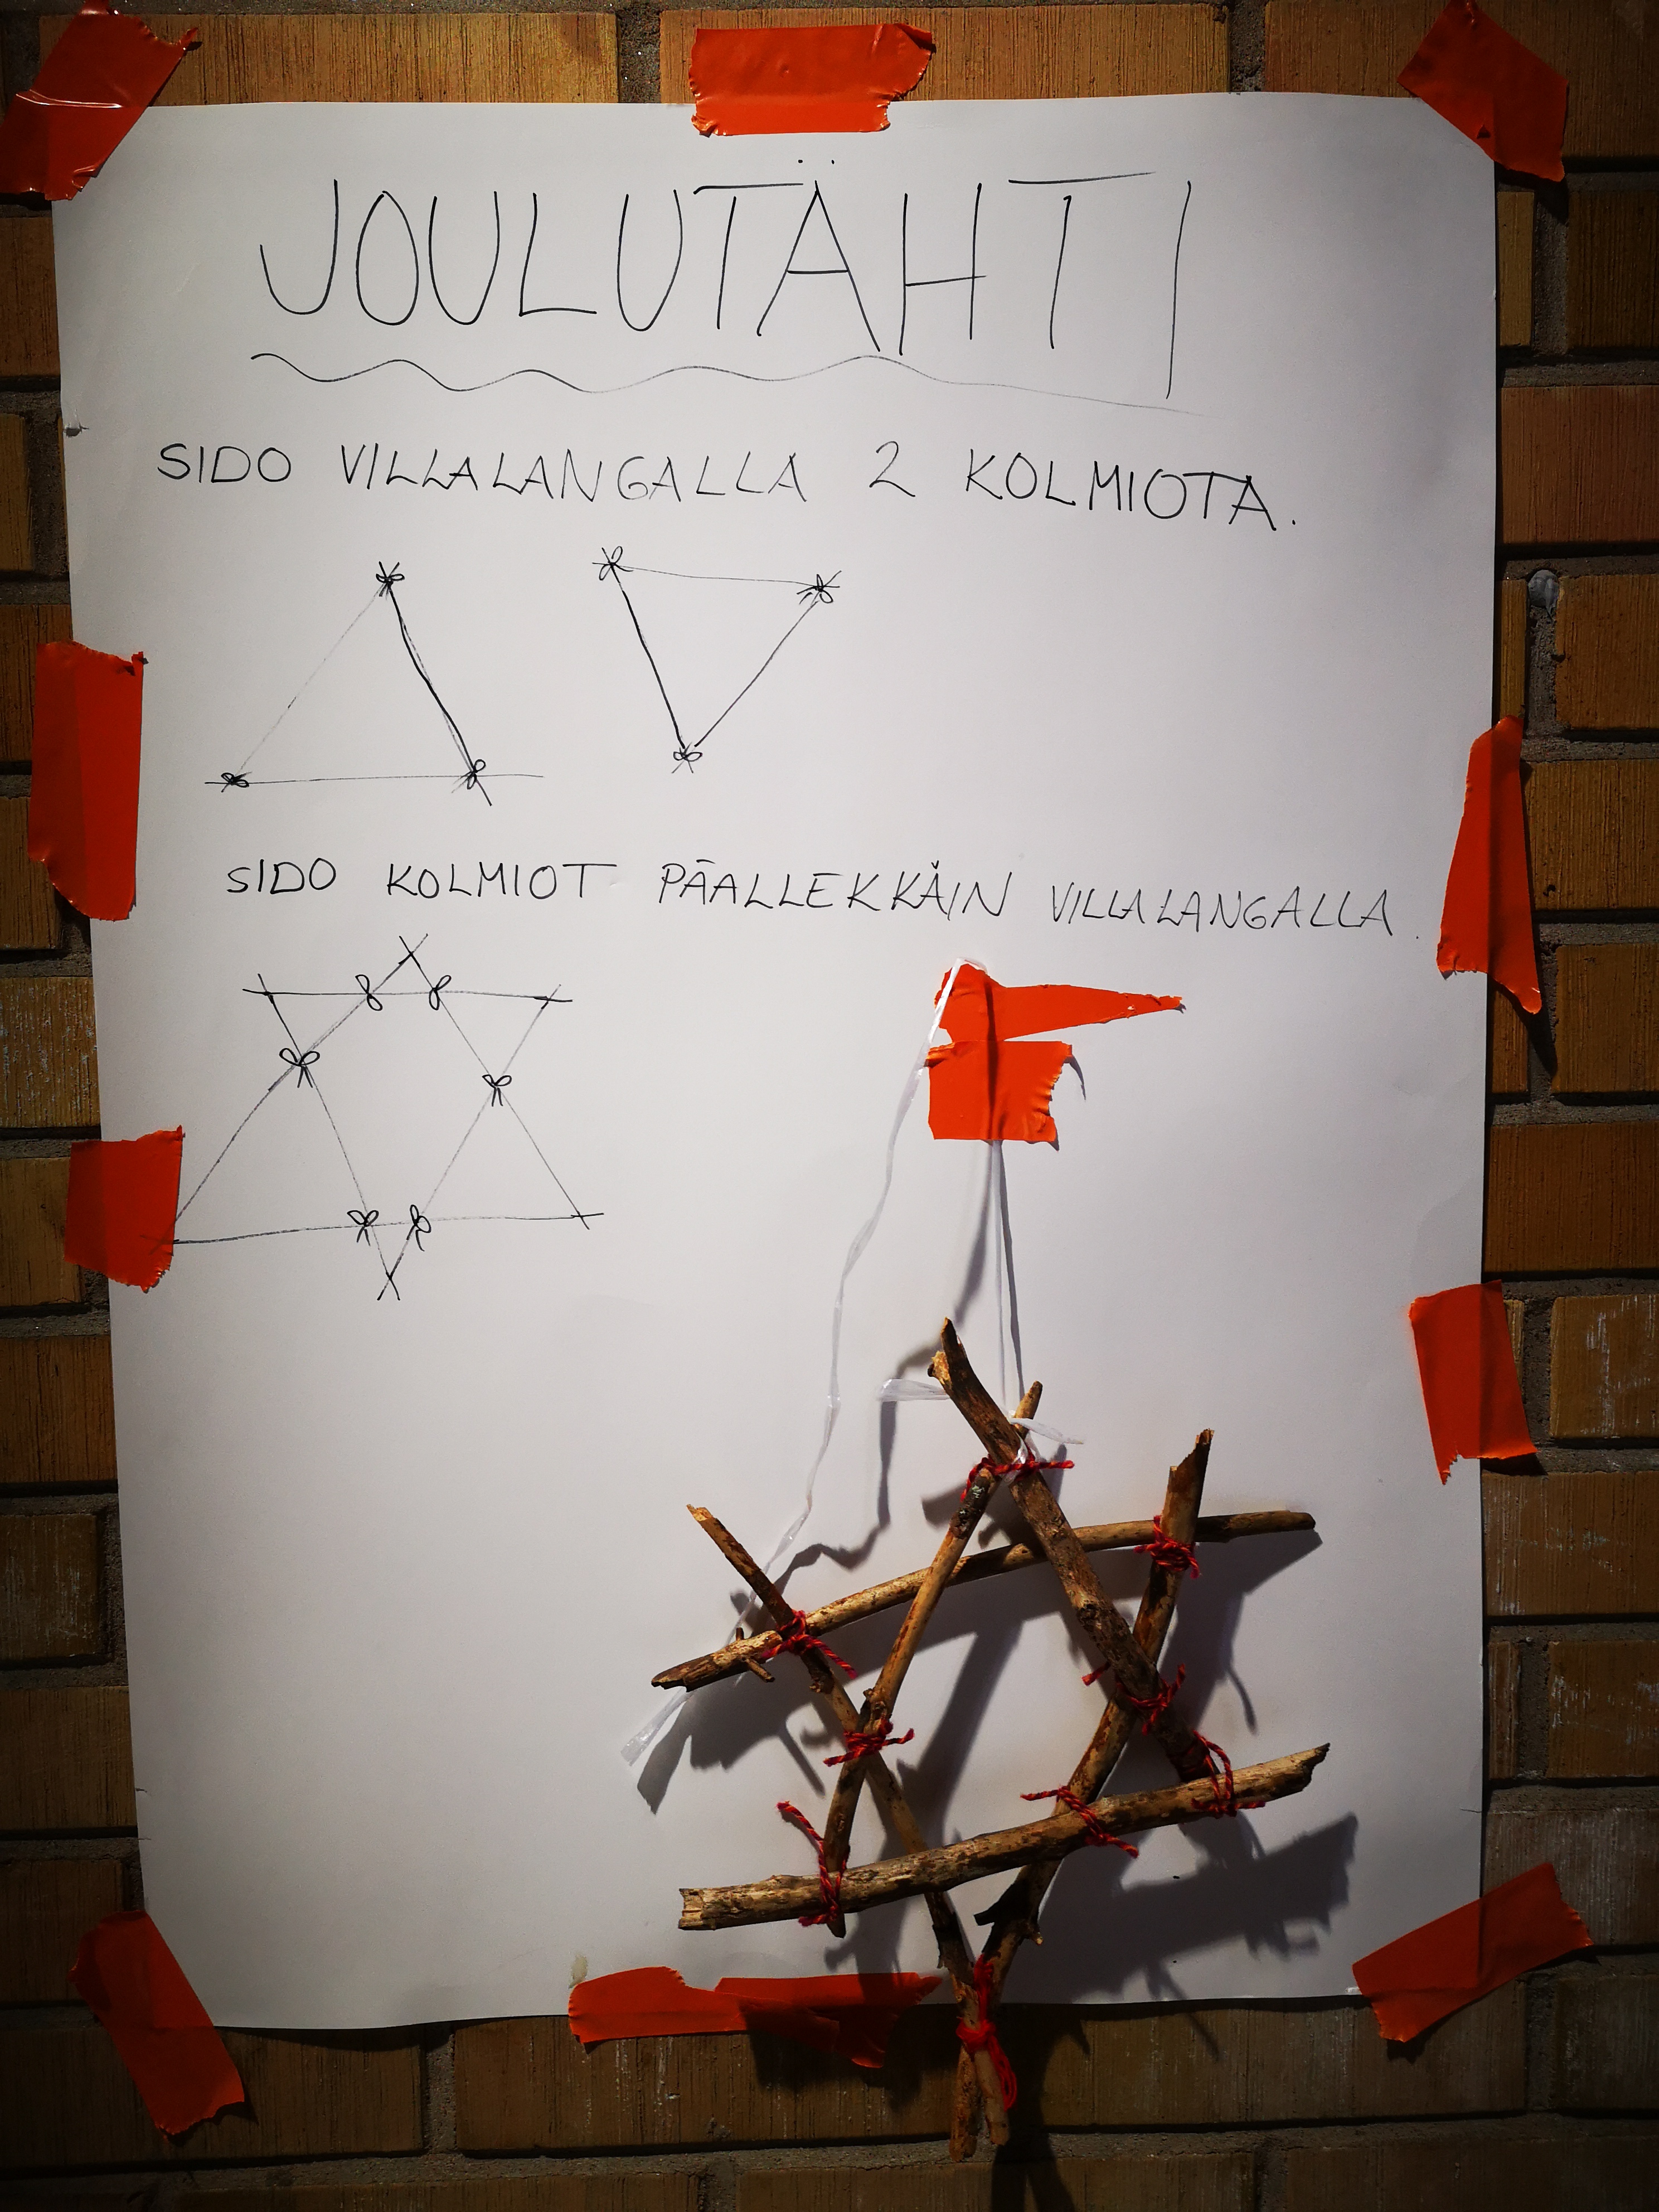 JOULUTÄHTI
SIDO VILLALANGALLA 2 KOLMIOTA.
SIDO KOLMIOT PÄALLEKKÄIN VILLALANGALLA.